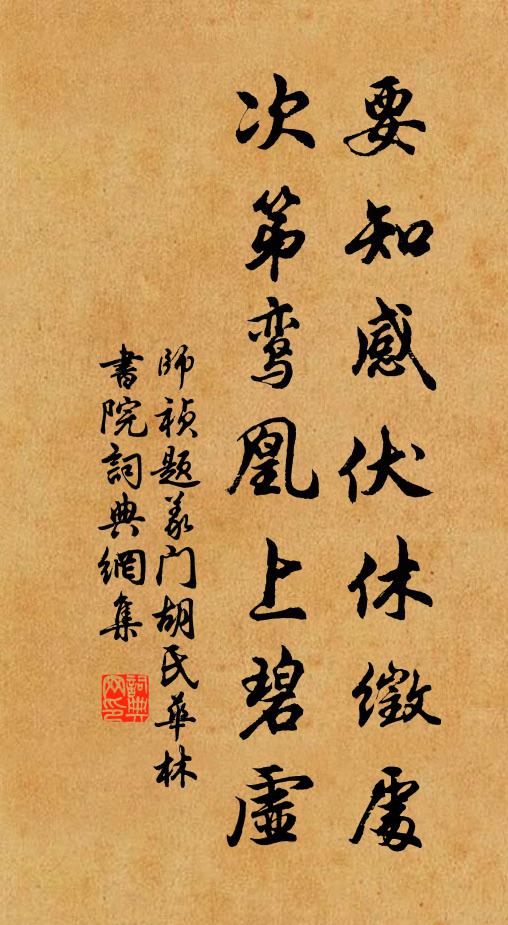 要知感伏休徵處
次第鸾凰上碧虛
師禎題義门胡氏華林
書院詞典網集
詞典網印